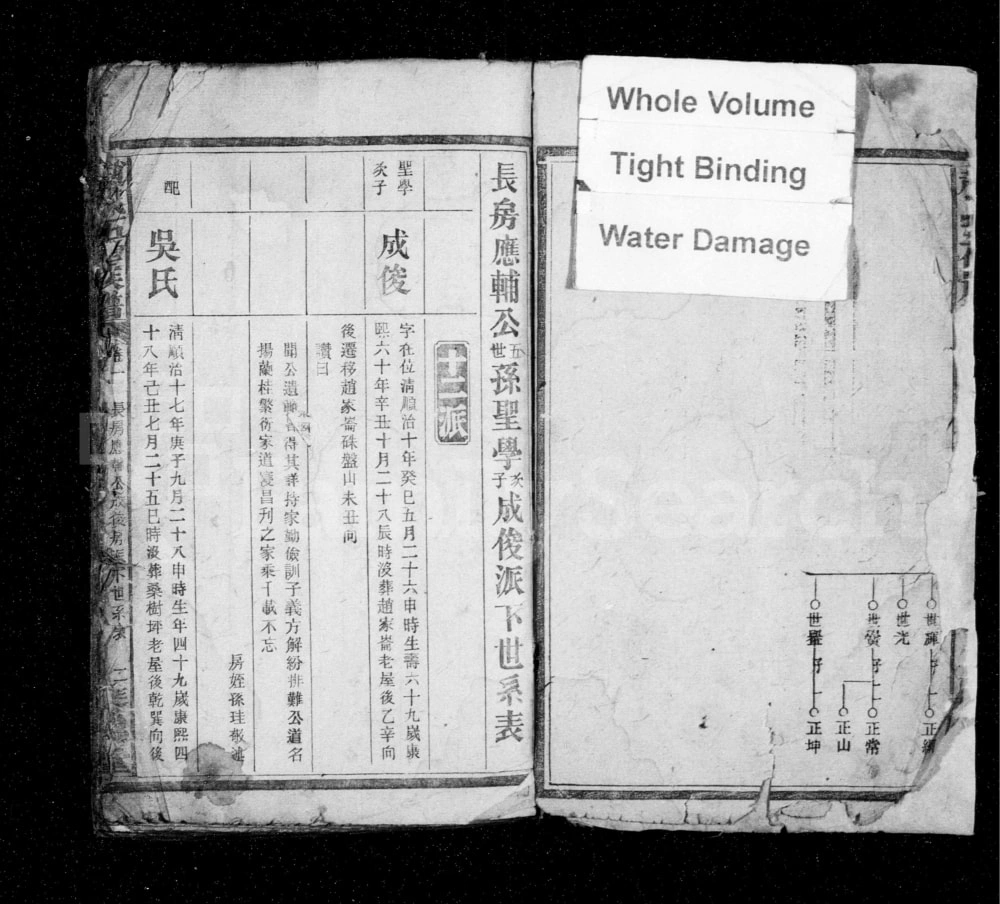 Whole Volume
Tight Binding
Water Damage
世
世光
世 子
世 子
正
正常
正山
正坤
長房應輔公五世孫聖學次子成俊派下世系表
十二派
聖學次子
成俊
字在位清順治十年癸巳五月二十六申時生壽六十九歲
熙六十年辛丑十月二十八辰時沒葬趙家崙老屋後乙辛向
後遷移趙家崙硃盤山未丑向
讚曰
聞公遺 得其詳持家勤儉訓子義方解紛排難公道名
揚蘭桂繁衍家道 昌刊之家乘千載不忘
房姪孫珪敬述
配
吳氏
清順治十七年庚子九月二十八申時生年四十九歲康熙四
十八年己丑七月二十五巳時沒葬桑樹坪老屋後乾巽向後
族譜
長房應輔公成俊房 下世系
二